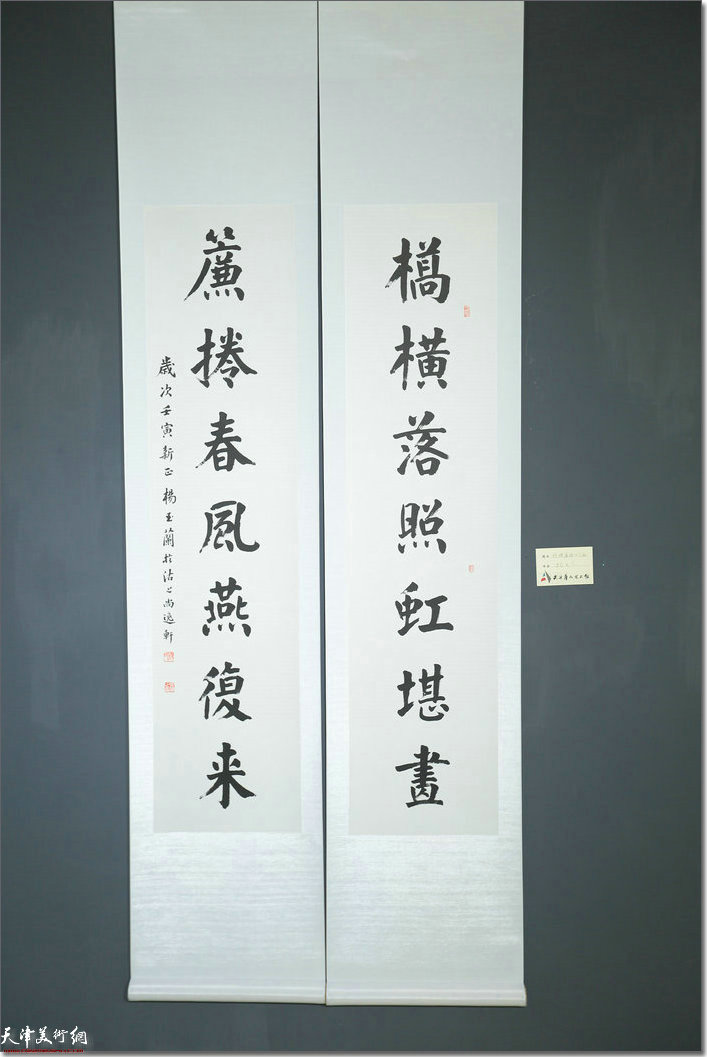 槗橫落照虹堪畫
簾捲春風燕復来
歲次壬寅新正 楊玉蘭於沽上尚逸軒
天津美術網